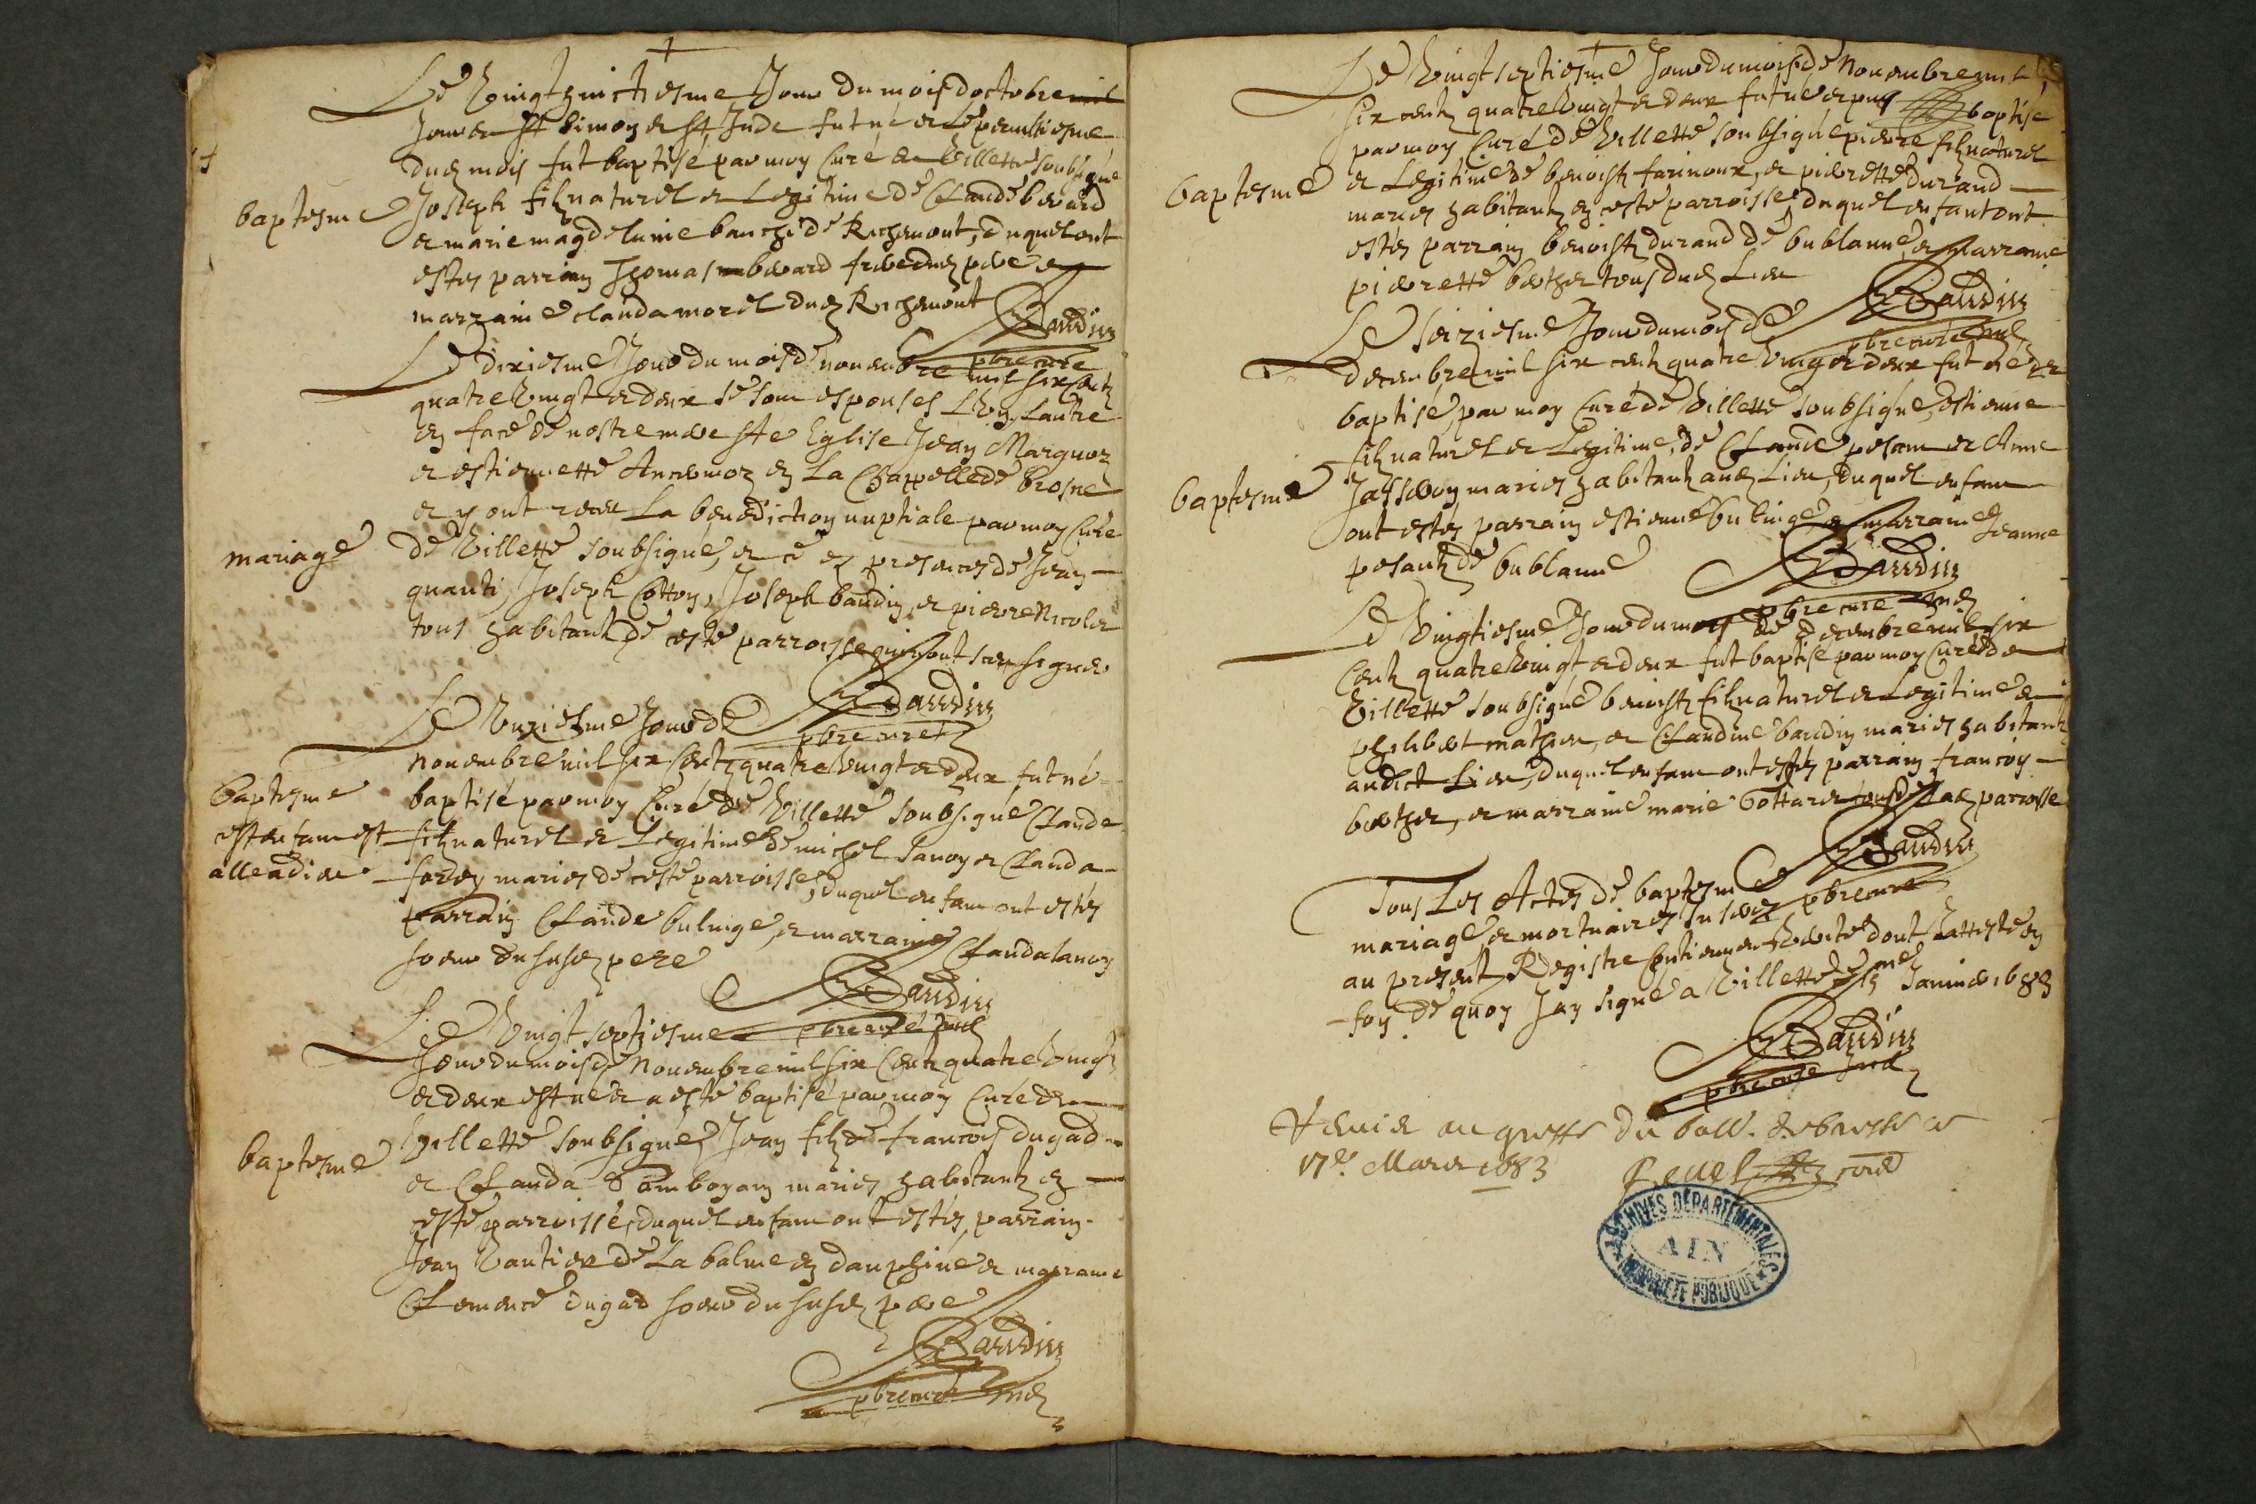 Le vingthuictiesme Jour du mois doctobre mil
Jour de St Simon et St Jude fut né et le penultiesme
dud mois fut baptisé par moy Curé de Villette soubsigné
baptesme Joseph filz naturel et Legitime de Claude berard
et marie magdelaine de Richemont, duquel ont
estes parrain Thomas berard frere dud pere et
marraine clauda morel dud Richemont
Baudin
pbre curé
Le dixiesme Jour du mois de novembre mil six centz
quatre vingt et deux se sont espousés Lun Lautre
en face de nostre mere Ste Eglise Jean Marguoz
et estiennette en La Chappelle de brosne
et y ont receu La benediction nuptiale par moy Curé
mariage de Villette soubsigné, et ce en presences de Jean
quanti, Joseph Cotton, Joseph baudin, et pierre Nicolet
tous habitantz de ceste parroisse qui nont sceu signer
Baudin
pbre curé
Le unziesme Jour de
novembre mil six centz quatre vingt et deux fut né
baptesme baptisé par moy Curé de Villette soubsigné Claude
cest enfant est filz naturel et Legitime de michel Lanoy et Clauda
mariés de ceste parroisse, duquel enfant ont estés
parrain Claude bulinge, et marraine Clauda Lanoy
soeur du susd pere
Baudin
pbre curé susd
Le Vingt septiesme
Jour du mois de Novembre mil six centz quatre vingtz
et deux est né et a esté baptisé par moy Curé de
Villette soubsigné Jean filz de francois dugad
baptesme et Clauda mariés habitantz en
ceste parroisse, duquel enfant ont estés parrain
Jean de La balme en dauphiné et marraine
Clemence dugad soeur du susd pere
Baudin
pbre curé susd
Le Vingt septiesme Jour du mois de Novembre mil
six centz quatre vingt et deux fut né et puis baptisé
par moy Curé de Villette soubsigné pierre filz naturel
baptesme et Legitime de benoist farinoux, et pierrette durand
mariés habitantz en ceste parroisse, duquel enfant ont
estés parrain benoist durand de bublanne, et marraine
pierrette berthet tous dud Lieu
Baudin
pbre curé susd
Le seiziesme Jour du mois de
decembre mil six centz quatre vingt et deux fut né et
baptisé, par moy Curé de Villette soubsigné, estienne
filz naturel et Legitime, de Claude pesant et Anne
baptesme mariés habitantz aud Lieu, duquel enfant
ont estés parrain estienne bulinge et marraine Jeanne
pesantz de bublanne
Baudin
pbre curé susd
Le Vingtiesme Jour du mois de decembre mil six
Centz quatre vingt et deux fut baptisé par moy Curé de
Villette soubsigné benoist filz naturel et Legitime de
philibert mathieu, et Claudine baudin mariés habitantz
audict Lieu, duquel enfant ont estés parrain francois
berthet, et marraine marie Cottaret tous de lad parroisse
Baudin
pbre curé
Tous Les Actes de baptesme
mariage, et mortuaires Inserez
au present Registre Contiennent verité dont Jatteste en
foy de quoy Jay signé a Villette le Janvier 1683
Baudin
pbre curé susd
Remis au greffe du ball. de bresse ce
17e Mars 1683
ARCHIVES DÉPARTEMENTALES
AIN
PROPRIÉTÉ PUBLIQUE